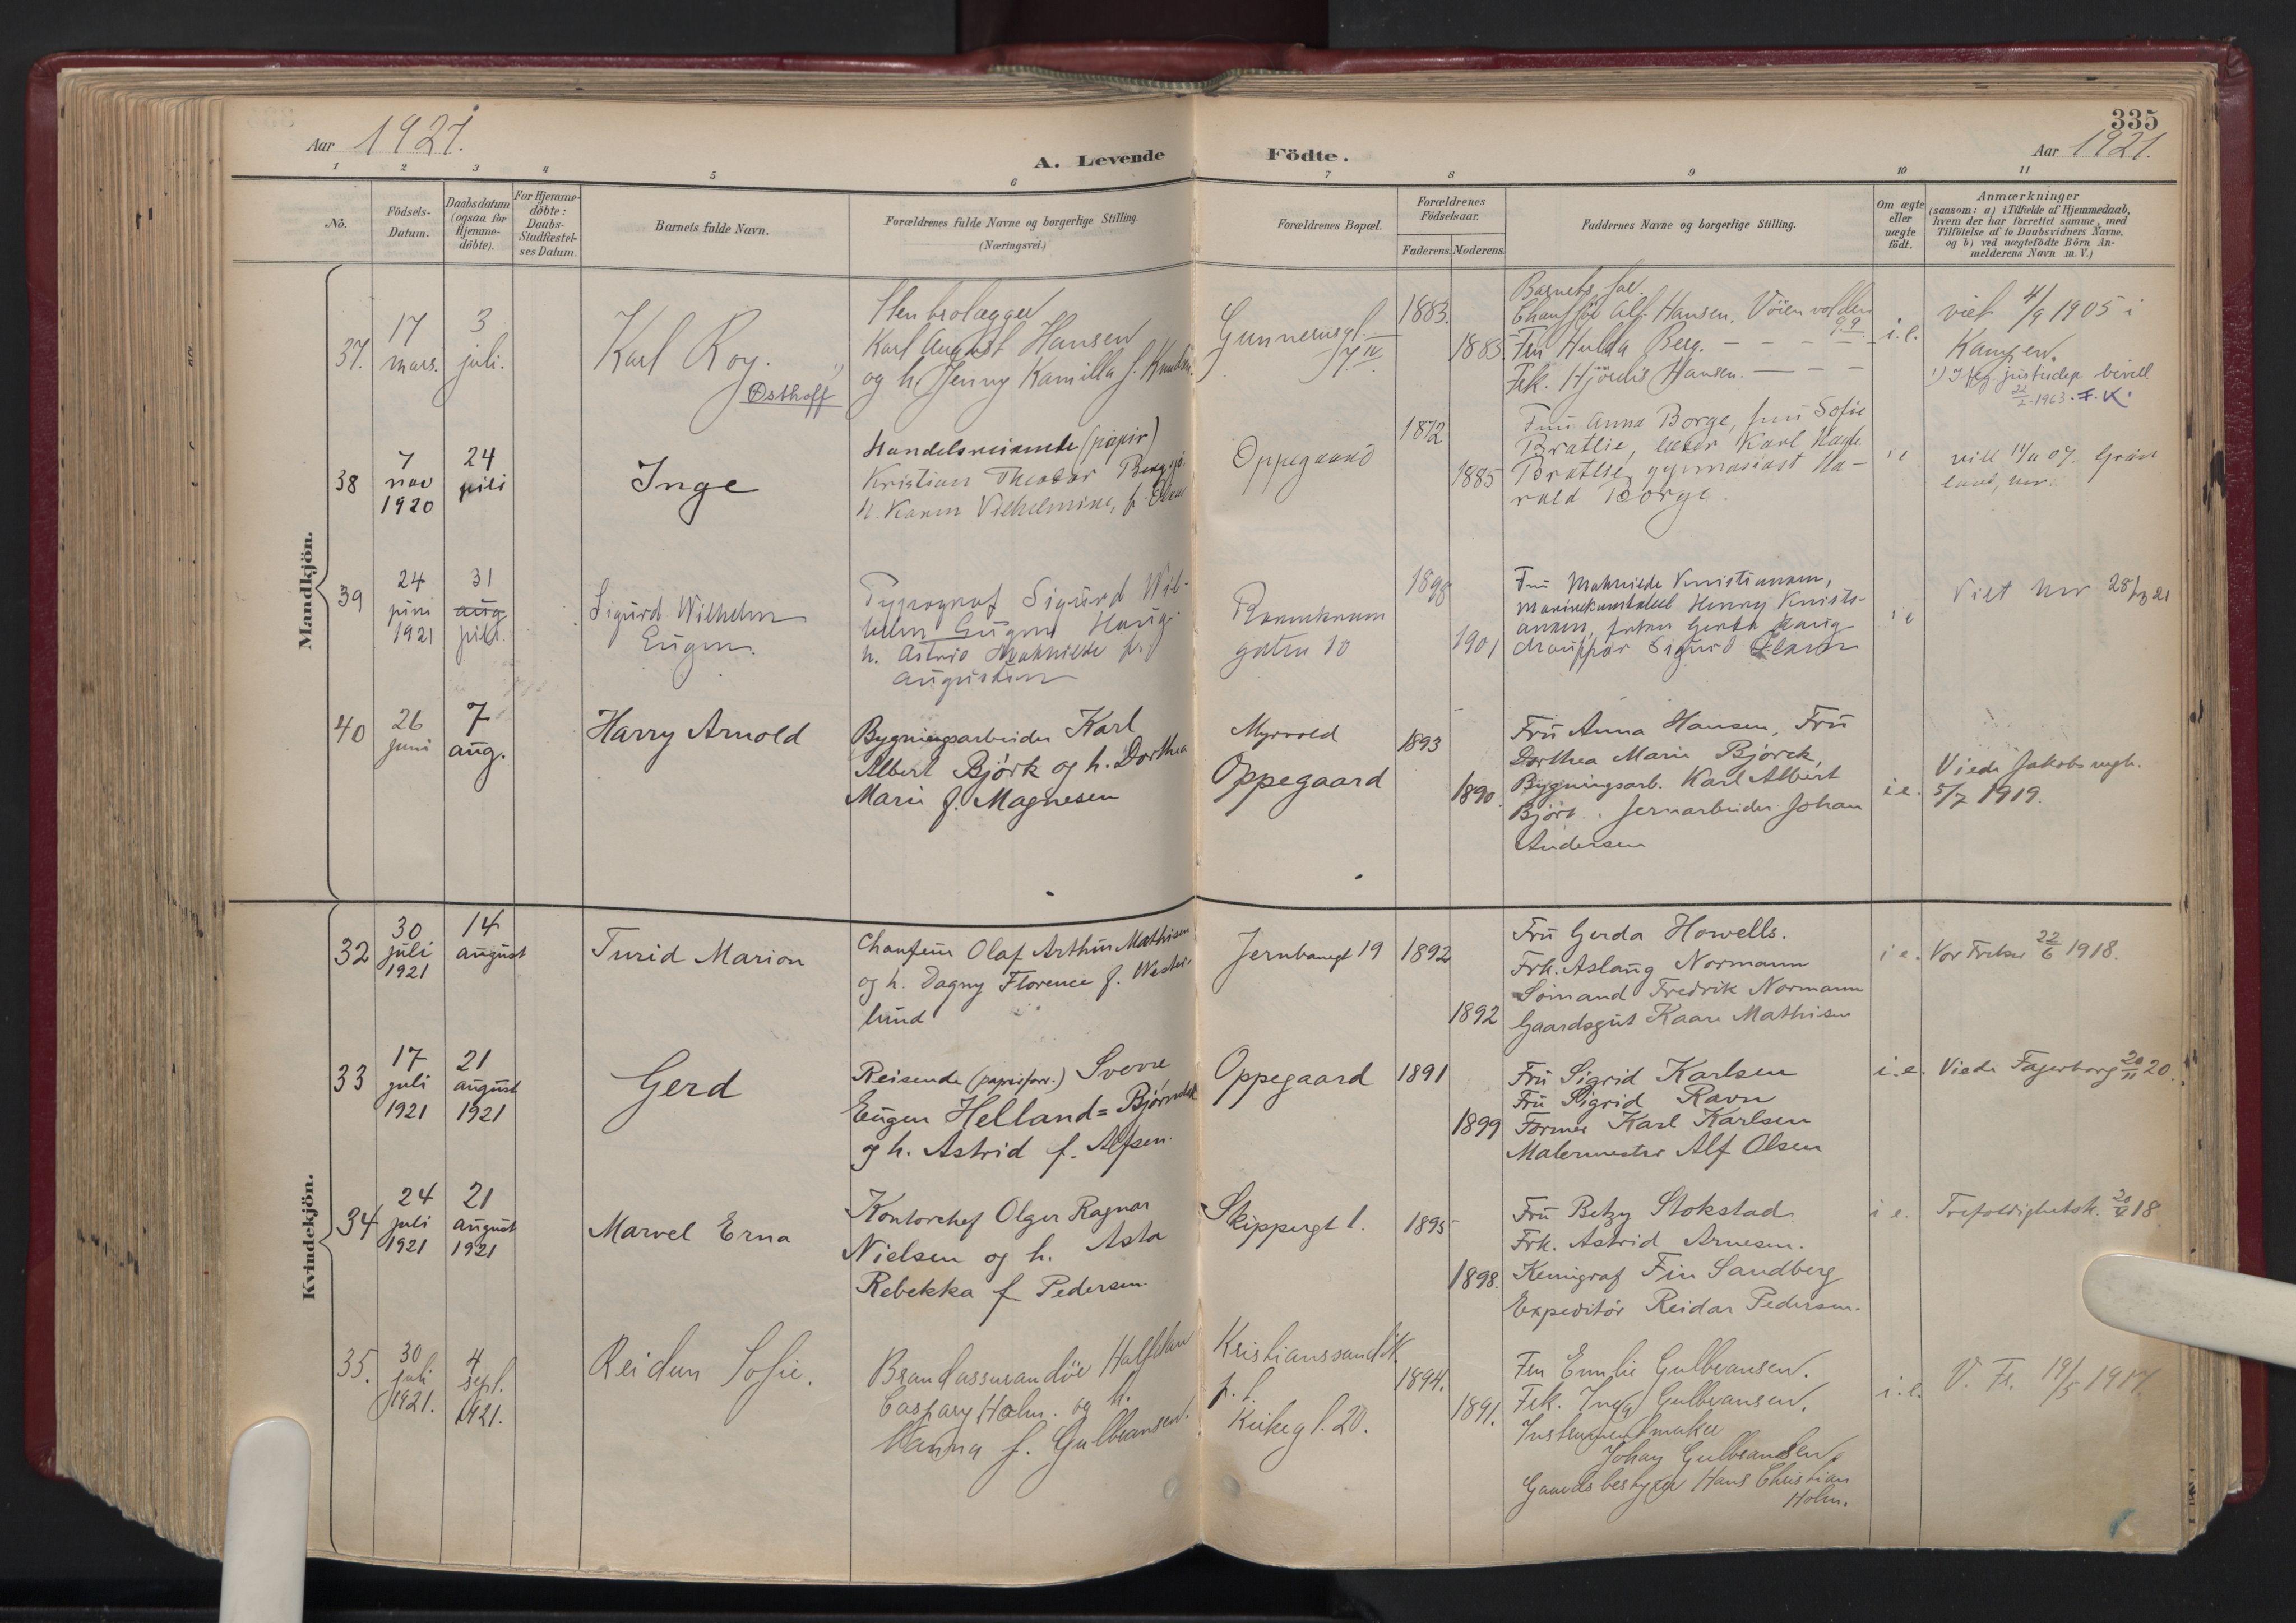 335
Aar 1921.
A. Levende Födte.
Aar 1921.
1 2 3 4 5 6 7 8 9 10 11
No.
Födsels-
Datum.
Daabsdatum
(ogsaa for
Hjemme-
döbte).
For Hjemme-
döbte:
Daabs-
Stadfæstel-
ses Datum.
Barnets fulde Navn.
Forældrenes fulde Navne og borgerlige Stilling.
(Næringsvei.)
Forældrenes Bopæl.
Forældrenes
Födselsaar.
Faderens. Moderens.
Faddernes Navne og borgerlige Stilling.
Om ægte
eller
uægte
födt.
Anmærkninger
(saasom: a) i Tilfælde af Hjemmedaab,
hvem der har forrettet samme, med
Tilföielse af to Daabsvidners Navne,
og b) ved uægtefödte Börn An-
melderens Navn m. V.)
Mandkjön.
37.
17
mars.
3
juli.
Karl Roy.
Osthoff
Stenbrolægger
Karl August Hansen
og h. Jenny Kamilla f. Knudsen.
Gunnerusgt.
7 IV
1883.
1883.
Barnets far.
Chauffør Alf Hansen. Vöienvolden
9.9.
Fru Hulda Berg. — — —
Frk. Hjördis Hansen. — — —
i.e.
viet 4/9 1905 i
Kampen.
1) Iflg justisdep. bevill.
1963. F.K.
38
7
nov
1920
24
juli
Inge
Handelsreisende (papir)
Kristian Theodor
h. Karen Vilhelmine, f.
Oppegaard
1872
1885
Fru Anna Borge, fru Sofie
Bratlie, Karl
Bratlie, gymnasiast Ha-
rald Borge.
i e
39
24
juni
1921
31
aug
juli.
Sigurd Wilhelm
Eugen.
Typograf Sigurd Wil-
helm Eugen Haug
h. Astrid Mathilde f.
Augustsen
gaten 10
1898
1901
Fru Mathilde Kristiansen,
Henry Kristi-
ansen, frøken Gerda Haug
Sigurd Olsen
i e
Viet 21
40
26
juni
7
aug.
Harry Arnold
Bygningsarbeider Karl
Albert Björk og h. Dorthea
Marie f. Magnesen
Myrvold
Oppegaard
1893
1890.
Fru Anna Hansen, Fru
Dorthea Marie Björck,
Bygningsarb. Karl Albert
Björk. Jernarbeider Johan
Andersen
i.e.
Viede Jakobs mgh.
5/7 1919.
Kvindekjön.
32
30
juli
1921
14
august
Turid Marion
Chauffeur Olaf Arthur Mathisen
og h. Dagny Florence f. Wester-
lund
Jernbanegt 19
1892
1892
Fru Gerda Howells.
Frk. Aslaug Normann
Sömand Fredrik Normann
Gaardsgut Kaare Mathisen
i e.
Vor Frelser 22/6 1918.
33
17
juli
1921
21
august
1921
Gerd
Reisende (papirforr.) Sverre
Eugen Helland=Björnstad
og h. Astrid f. Alfsen.
Oppegaard
1891
1899
Fru Sigrid Karlsen
Fru Sigrid Ravn
Former Karl Karlsen
Malermester Alf Olsen
i.e.
Viede Fagerborg 20/11 20.
34
24
juli
1921
21
august
1921
Marvel Erna
Kontorchef Olger Ragnar
Nielsen og h. Asta
Rebekka f Pedersen.
Skippergt 1.
1895
1898.
Fru Betzy Stokstad.
Frk. Astrid Arnesen.
Kemigraf Fin Sandberg
Expeditör Reidar Pedersen.
i e.
Trefoldighetsk. 18
35.
30
juli
1921.
4
sept.
1921.
Reidun Sofie.
Brandassurandör Halfdan
Caspary Holm. og h.
Nanna f. Gulbransen.
Kristianssand
p.t.
Kirkegt. 20.
1894.
1891.
Fru Emilie Gulbransen.
Frk. Inga Gulbransen.
Instrumentmaker
Johan Gulbrandsen.
Gaardsbestyrer Hans Christian
Holm.
i.e.
V. Fr. 19/5 1917.